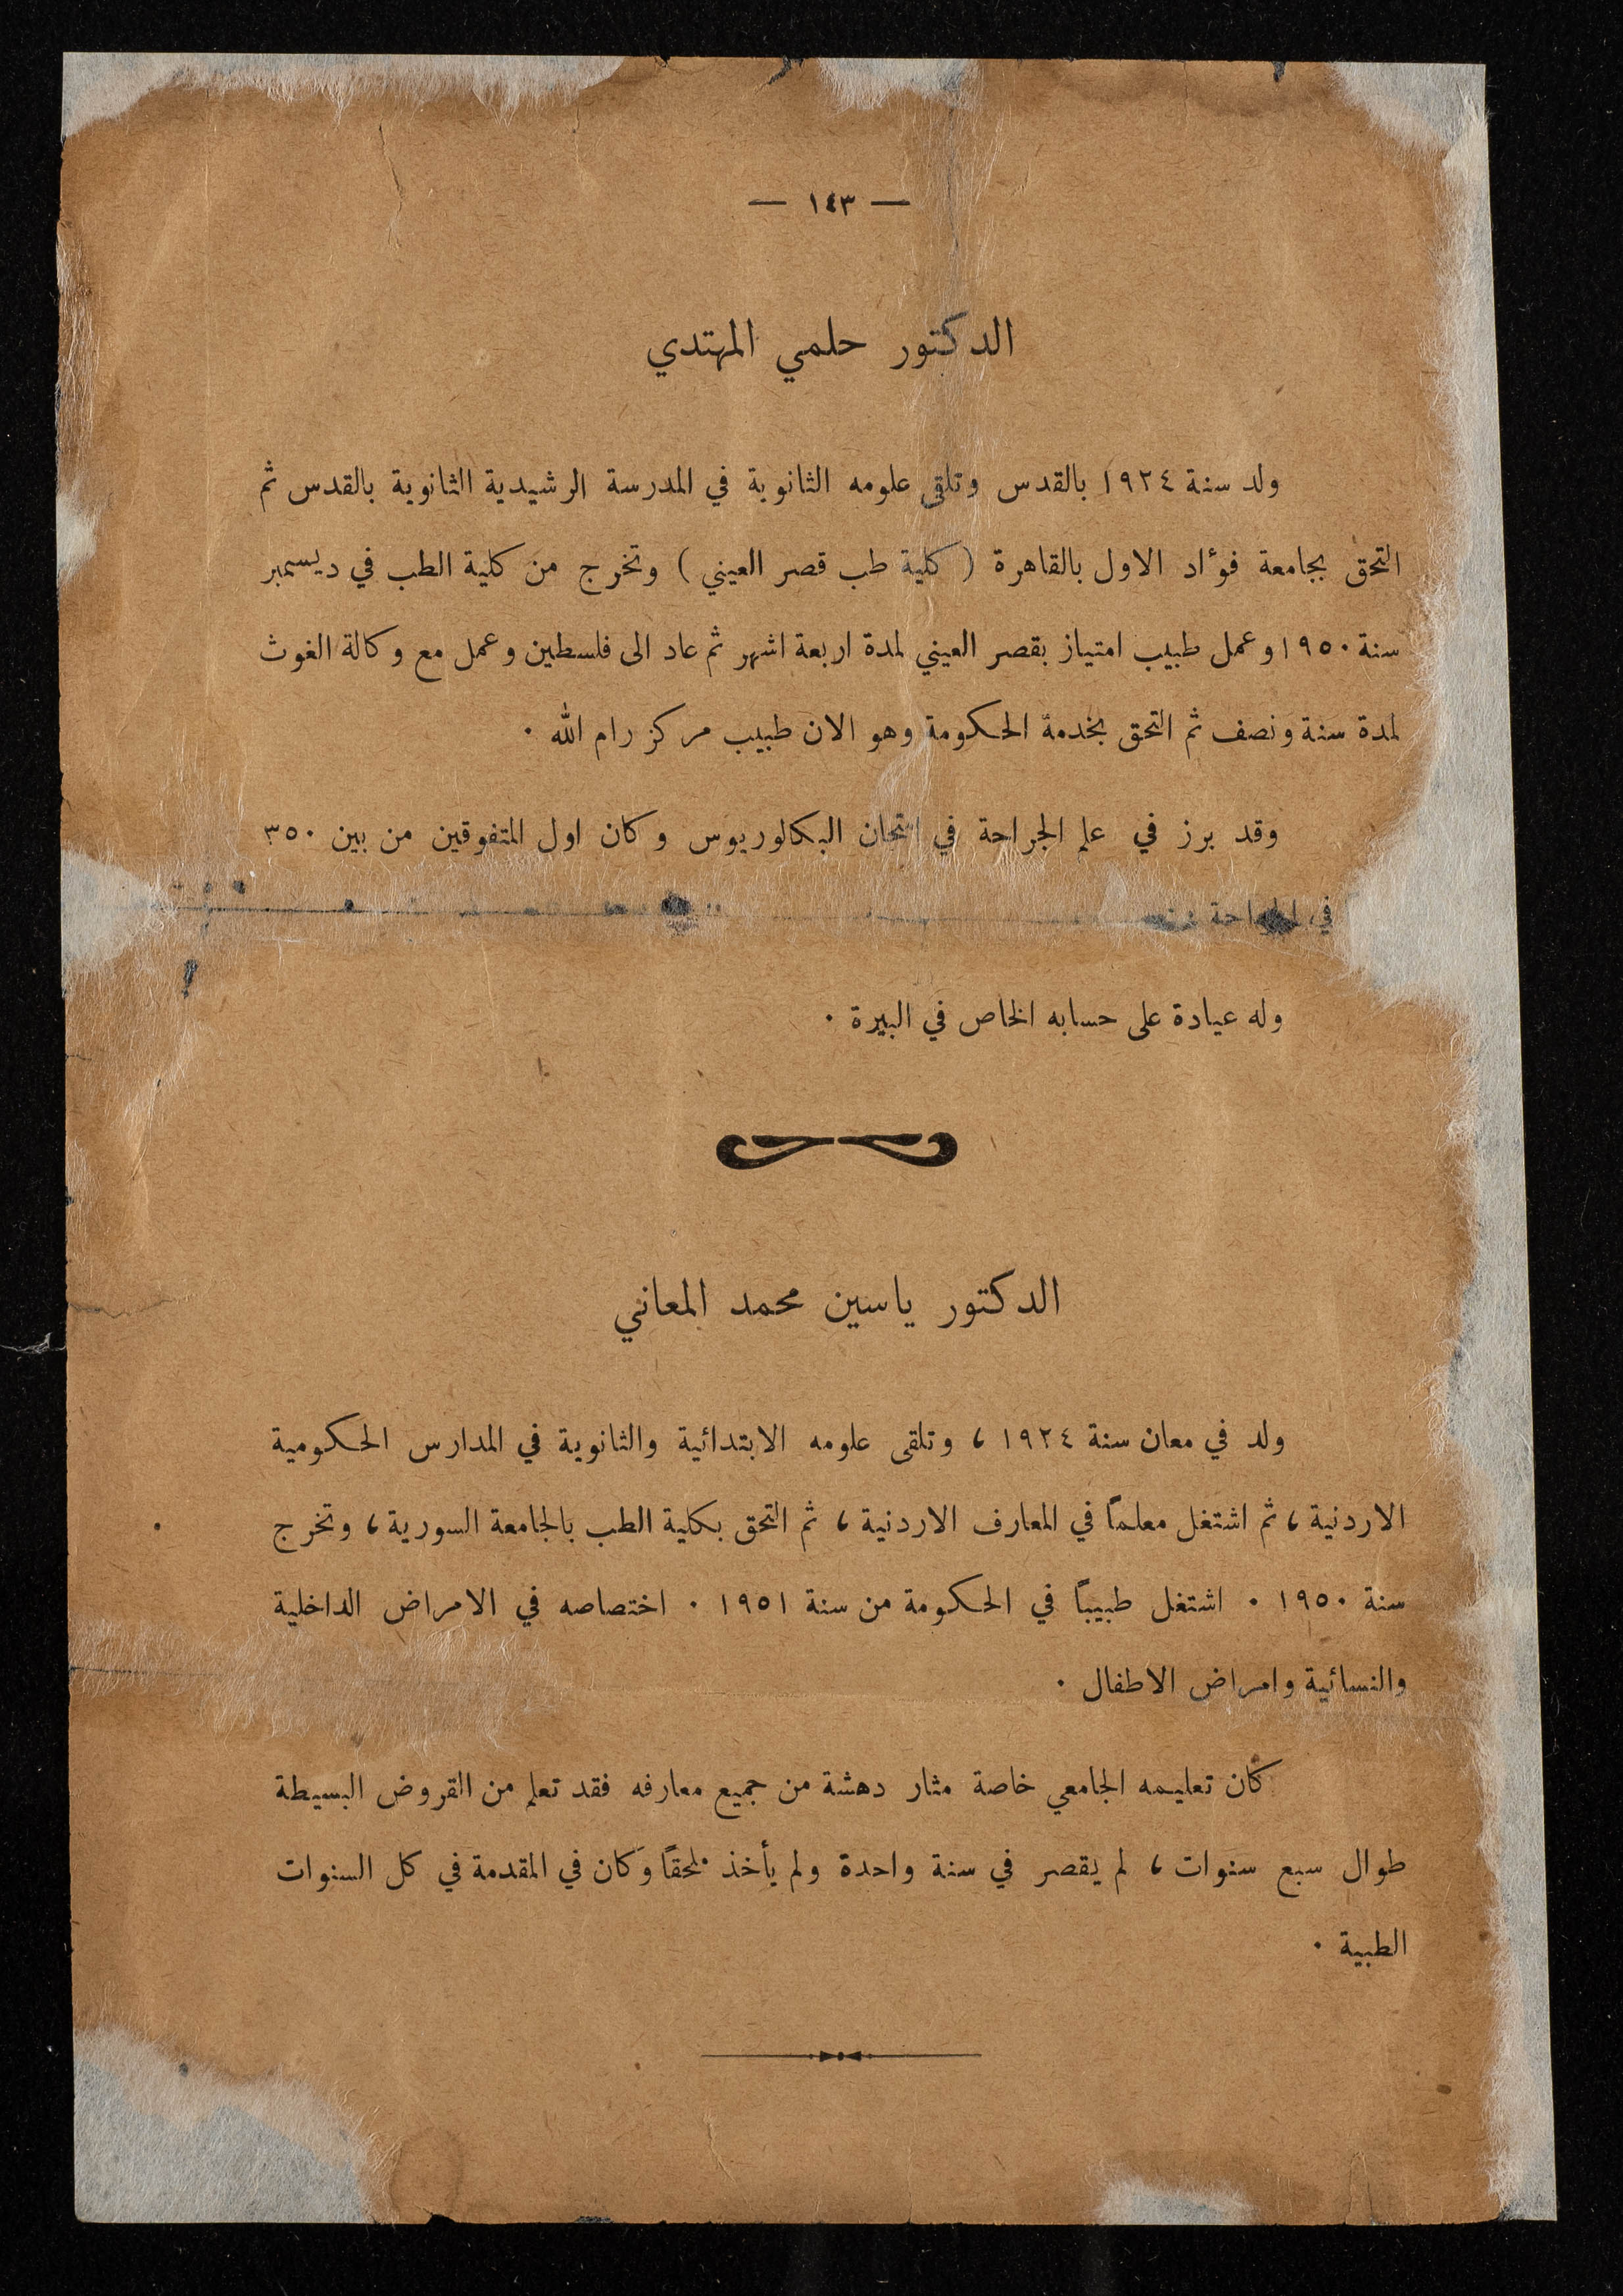 — ١٤٣ —
الدكتور حلمي المهتدي
ولد سنة ١٩٢٤ بالقدس وتلقى علومه الثانوية في المدرسة الرشيدية الثانوية بالقدس ثم
التحق بجامعة فؤاد الاول بالقاهرة ( كلية طب قصر العيني ) وتخرج من كلية الطب في ديسمبر
سنة ١٩٥٠ وعمل طبيب امتياز بقصر العيني لمدة اربعة اشهر ثم عاد الى فلسطين وعمل مع وكالة الغوث
لمدة سنة ونصف ثم التحق بخدمة الحكومة وهو الان طبيب مركز رام الله ٠
وقد برز في علم الجراحة في امتحان البكالوريوس وكان اول المتفوقين من بين ٣٥٠
في
وله عيادة على حسابه الخاص في البيرة ٠
الدكتور ياسين محمد المعاني
ولد في معان سنة ١٩٢٤ ، وتلقى علومه الابتدائية والثانوية في المدارس الحكومية
الاردنية ، ثم اشتغل معلماً في المعارف الاردنية ، ثم التحق بكلية الطب بالجامعة السورية ، وتخرج
سنة ١٩٥٠ ٠ اشتغل طبيباً في الحكومة من سنة ١٩٥١ ٠ اختصاصه في الامراض الداخلية
والنسائية وامراض الاطفال ٠
كان تعليمه الجامعي خاصة مثار دهشة من جميع معارفه فقد تعلم من القروض البسيطة
طوال سبع سنوات ، لم يقصر في سنة واحدة ولم يأخذ ملحقاً وكان في المقدمة في كل السنوات
الطبية ٠